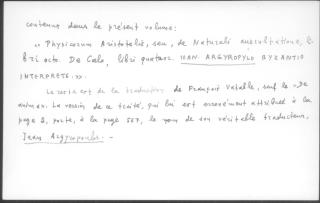 contenus dans le présent volume:
"Physicorum Aristotelis, seu, de Naturali auscultatione, li-
bri octo. De Caelo, libri quatuor. IOAN. ARGYROPYLO BYZANTIO
INTERPRETE.".
Le reste est de la traduction de François Vatable, sauf le "De
anima". La version de ce traité, qui lui est erronément attribuée à la
page 2, porte, à la page 557, le nom de son véritable traducteur,
Jean Argyropoulos. -